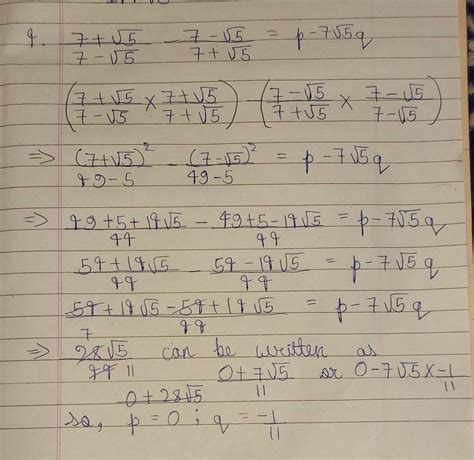 9. (7+√5)/(7-√5) - (7-√5)/(7+√5) = p-7√5q
((7+√5)/(7-√5) × (7+√5)/(7+√5)) - ((7-√5)/(7+√5) × (7-√5)/(7-√5))
⇒ (7+√5)²/(49-5) - (7-√5)²/(49-5) = p-7√5q
⇒ (49+5+14√5)/44 - (49+5-14√5)/44 = p-7√5q
(54+14√5)/44 - (54-14√5)/44 = p-7√5q
(54+14√5-54+14√5)/44 = p-7√5q
⇒ 7 28√5/44 11 can be written as
0+28√5 (0+7√5)/11 or 0-7√5×-1/11
so, p=0; q=-1/11